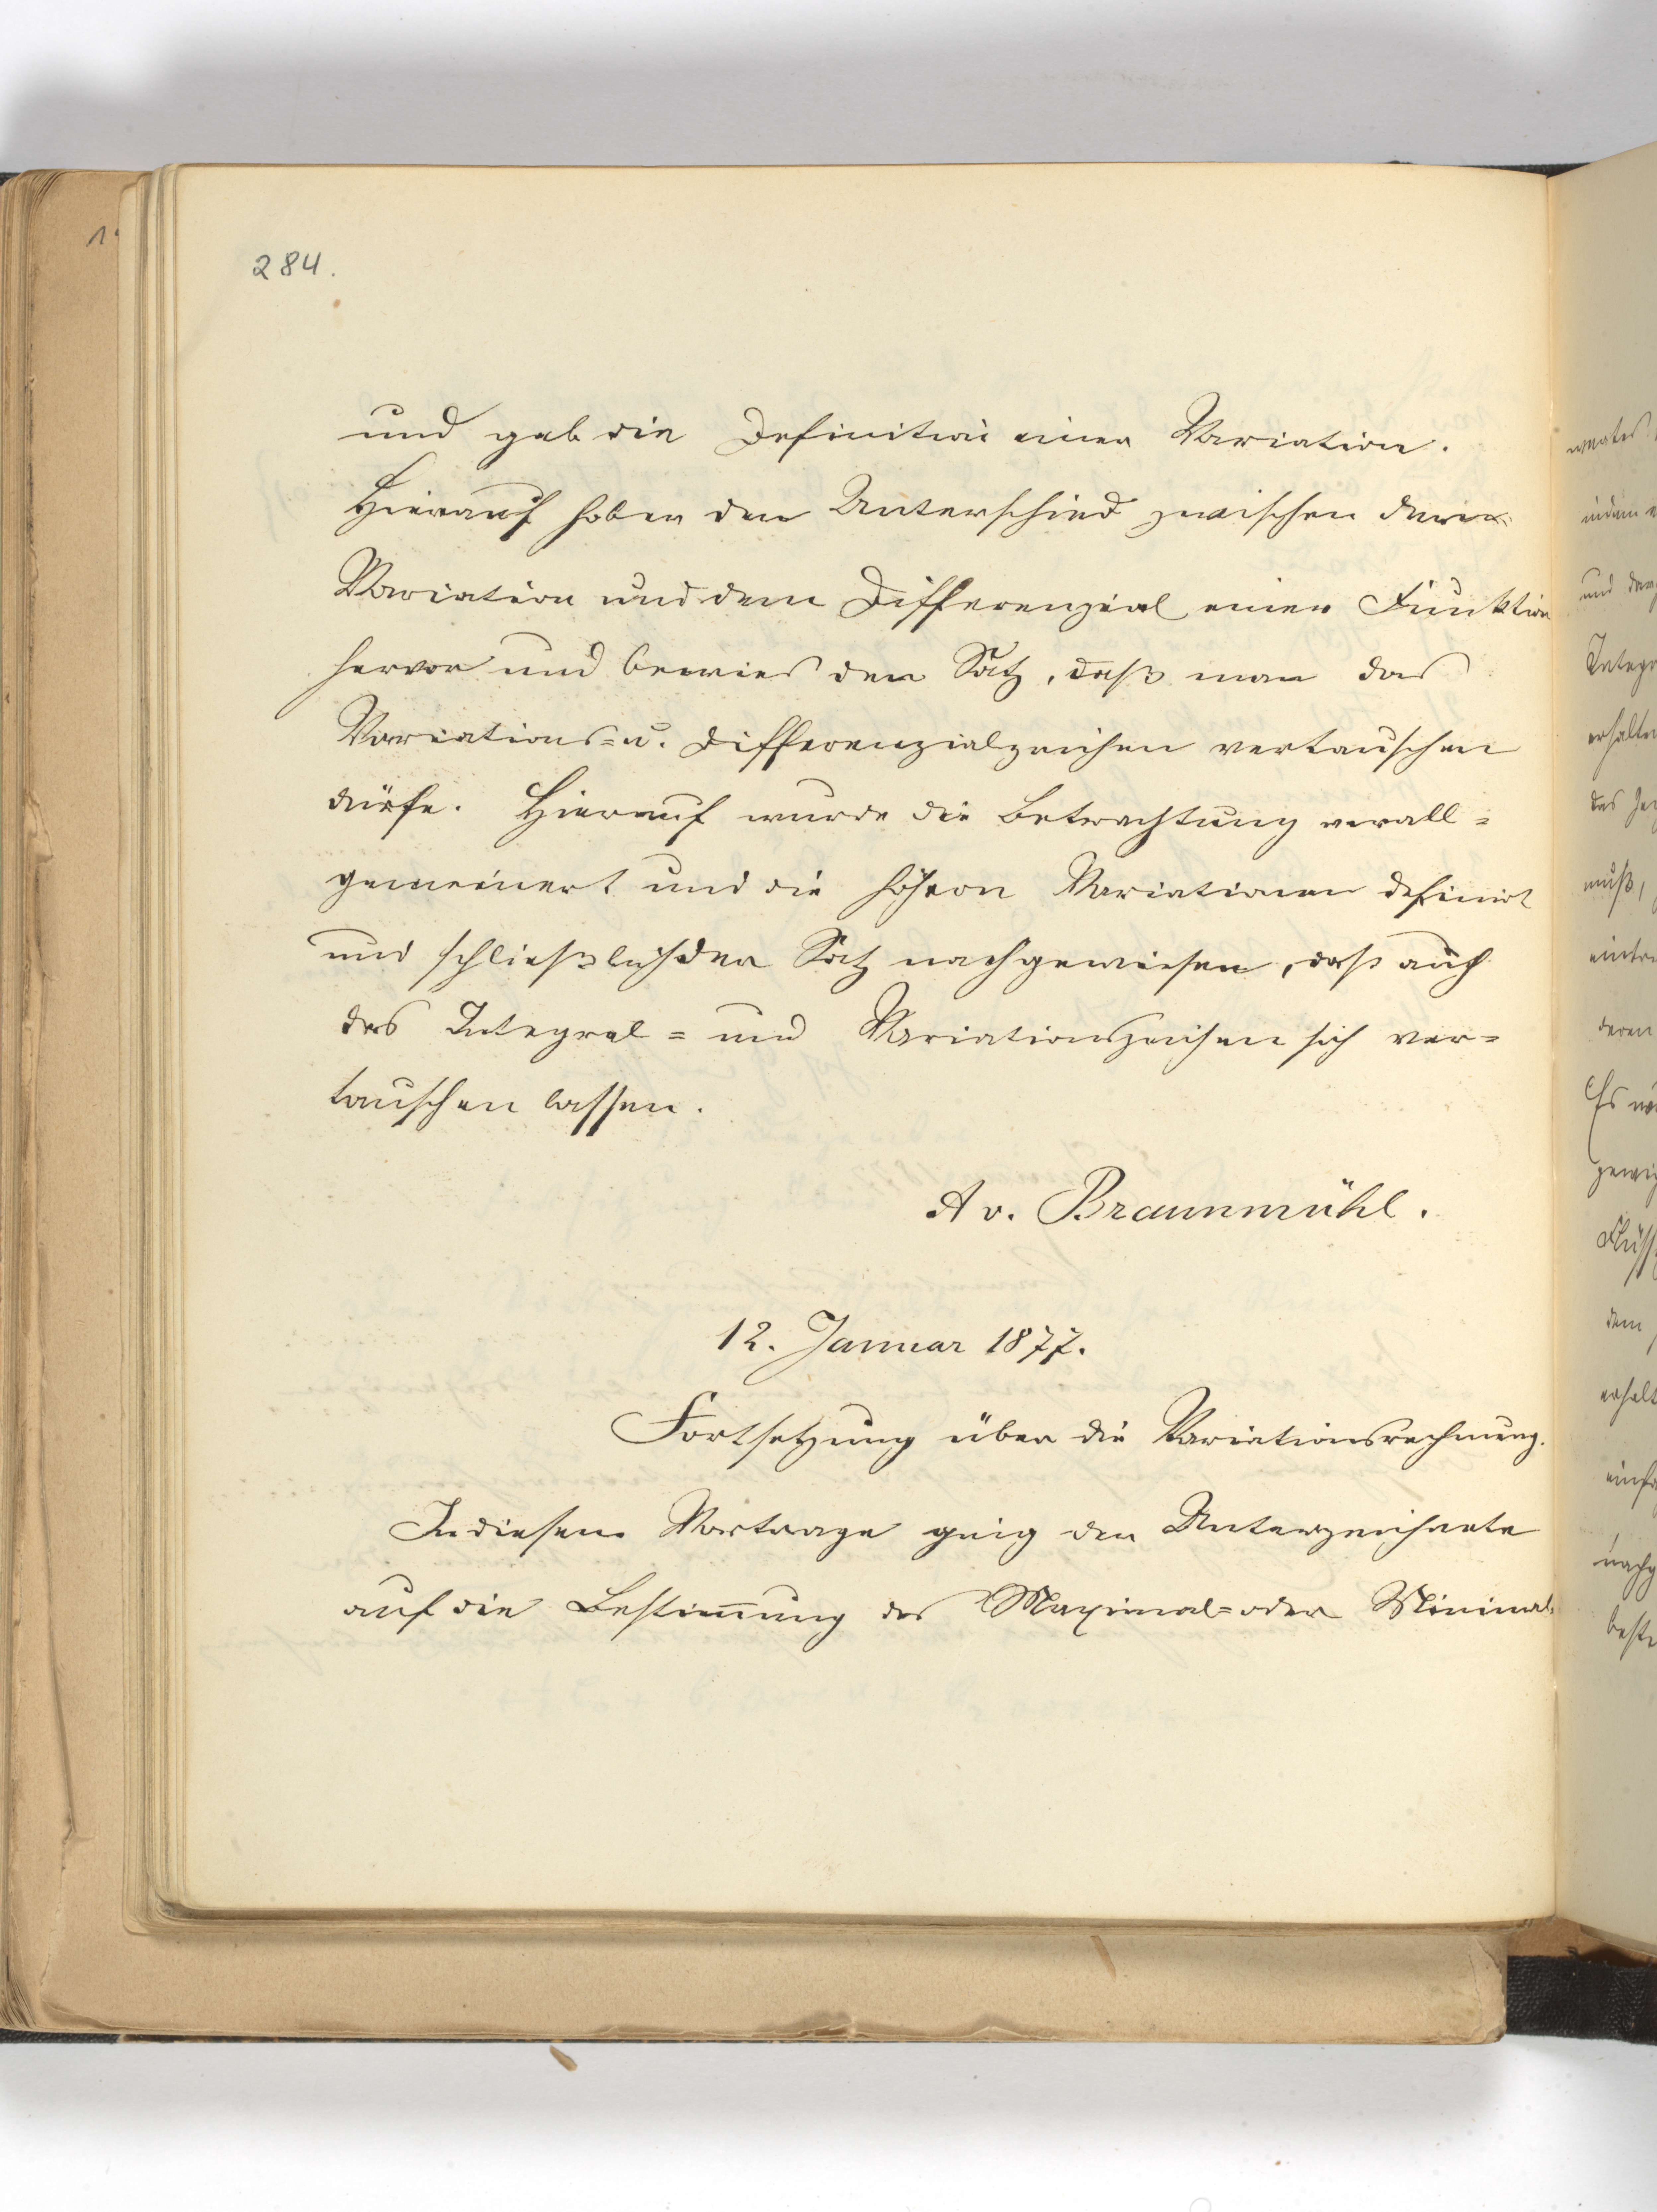 284.
und gab die Definition einer Variation.
Hierauf hob er den Unterschied zwischen der
Variation und dem Differenzial einer Funktion
hervor und bewies den Satz, daß man das
Variations= u. Differenzialzeichen vertauschen
dürfe. Hierauf wurde die Betrachtung verall=
gemeinert und die höhern Variationen definirt
und schließlich der Satz nachgewiesen, daß auch
das Integral= und Variationszeichen sich ver=
tauschen lassen.
A v. Braunmühl.
12. Januar 1877.
Fortsetzung über die Variationsrechnung.
In diesem Vortrage ging der Unterzeichnete
auf die Bestim̅ung des Maximal= oder Minimal=
indem
und
Integr
erhalten
das
muß,
deren
Es
dem